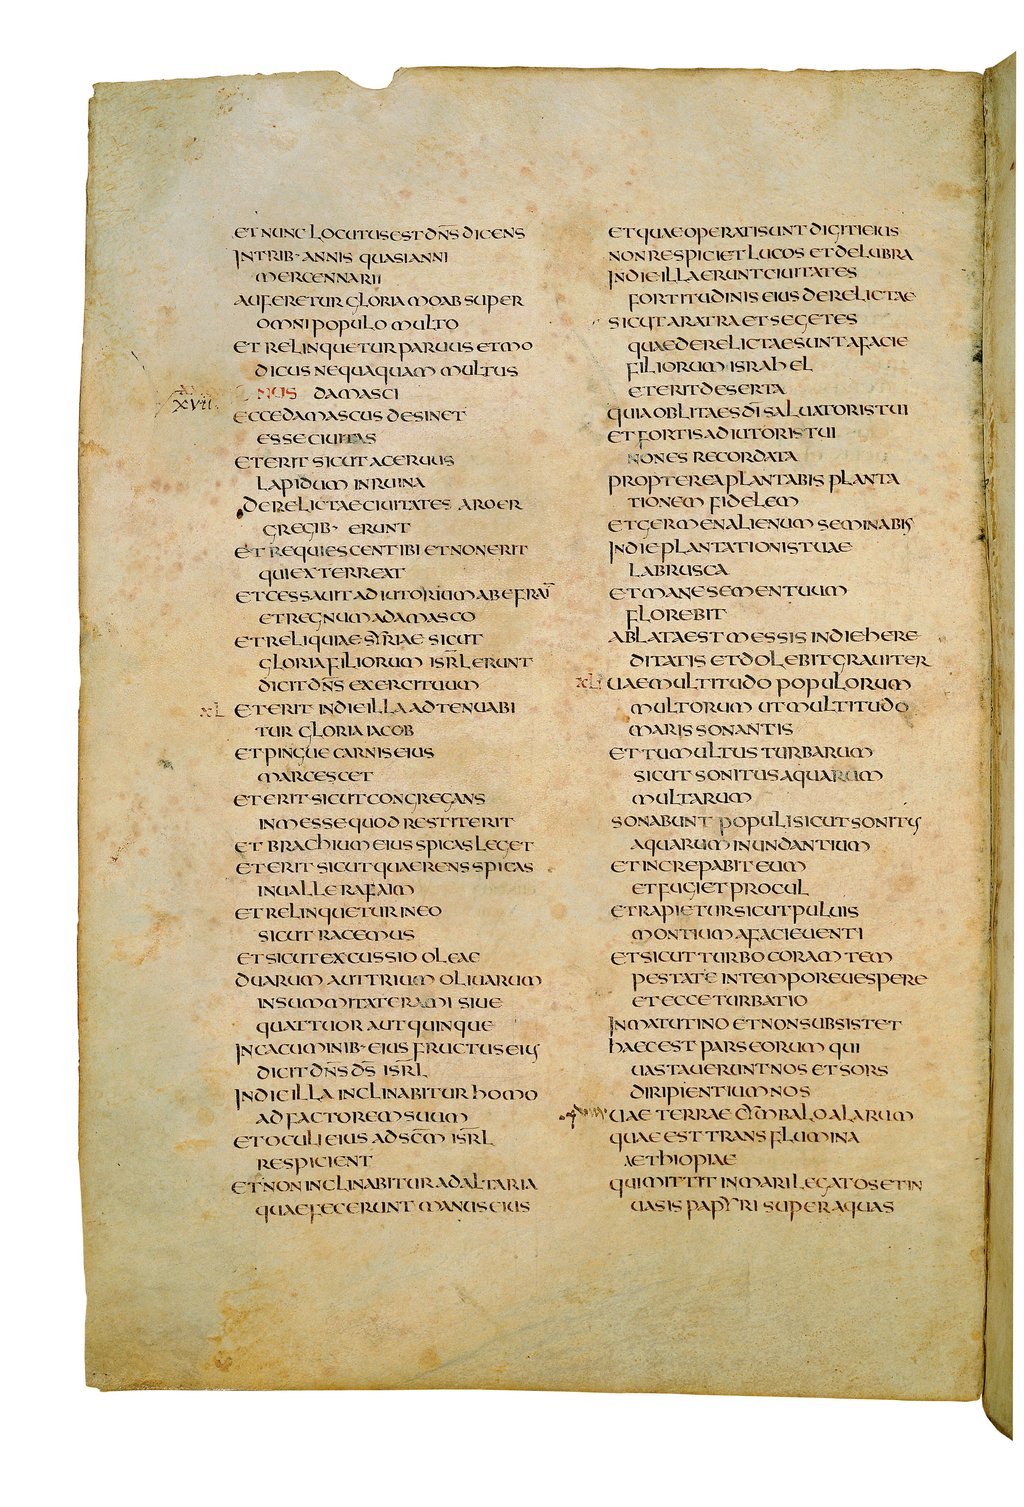 ET NUNC LOCUTUS EST DN̄S DICENS
IN TRIB· ANNIS QUASI ANNI
MERCENNARII
AUFERETUR GLORIA MOAB SUPER
OMNI POPULO MULTO
ET RELINQUETUR PARUUS ET MO
DICUS NEQUAQUAM MULTUS
XVII. NUS DAMASCI
ECCE DAMASCUS DESINET
ESSE CIUITAS
ET ERIT SICUT ACERUUS
LAPIDUM IN RUINA
DERELICTAE CIUITATES AROER
GREGIB· ERUNT
ET REQUIESCENT IBI ET NON ERIT
QUI EXTERREAT
ET CESSAUIT ADIUTORIUM AB EFRAĪ
ET REGNUM A DAMASCO
ET RELIQUIAE SYRIAE SICUT
GLORIA FILIORUM ISRL̄ ERUNT
DICIT DN̄S EXERCITUUM
XL ET ERIT IN DIE ILLA ADTENUABI
TUR GLORIA IACOB
ET PINGUE CARNIS EIUS
MARCESCET
ET ERIT SICUT CONGREGANS
IN MESSE QUOD RESTITERIT
ET BRACHIUM EIUS SPICAS LEGET
ET ERIT SICUT QUAERENS SPICAS
IN UALLE RAFAIM
ET RELINQUETUR IN EO
SICUT RACEMUS
ET SICUT EXCUSSIO OLEAE
DUARUM AUT TRIUM OLIUARUM
IN SUMMITATE RAMI SIUE
QUATTUOR AUT QUINQUE
IN CACUMINIB· EIUS FRUCTUS EIUS
DICIT DN̄S DS̄ ISRL̄
IN DIE ILLA INCLINABITUR HOMO
AD FACTOREM SUUM
ET OCULI EIUS AD SCM̄ ISRL̄
RESPICIENT
ET NON INCLINABITUR AD ALTARIA
QUAE FECERUNT MANUS EIUS
ET QUAE OPERATI SUNT DIGITI EIUS
NON RESPICIET LUCOS ET DELUBRA
IN DIE ILLA ERUNT CIUITATES
FORTITUDINIS EIUS DERELICTAE
SICUT ARATRA ET SEGETES
QUAE DERELICTAE SUNT A FACIE
FILIORUM ISRAHEL
ET ERIT DESERTA
QUIA OBLITA ES DĪ SALUATORIS TUI
ET FORTIS ADIUTORIS TUI
NON ES RECORDATA
PROPTEREA PLANTABIS PLANTA
TIONEM FIDELEM
ET GERMEN ALIENUM SEMINABIS
IN DIE PLANTATIONIS TUAE
LABRUSCA
ET MANE SEMEN TUUM
FLOREBIT
ABLATA EST MESSIS IN DIE HERE
DITATIS ET DOLEBIT GRAUITER
XLI UAE MULTITUDO POPULORUM
MULTORUM UT MULTITUDO
MARIS SONANTIS
ET TUMULTUS TURBARUM
SICUT SONITUS AQUARUM
MULTARUM
SONABUNT POPULI SICUT SONITUS
AQUARUM INUNDANTIUM
ET INCREPABIT EUM
ET FUGIET PROCUL
ET RAPIETUR SICUT PULUIS
MONTIUM A FACIE UENTI
ET SICUT TURBO CORAM TEM
PESTATE IN TEMPORE UESPERE
ET ECCE TURBATIO
IN MATUTINO ET NON SUBSISTET
HAEC EST PARS EORUM QUI
UASTAUERUNT NOS ET SORS
DIRIPIENTIUM NOS
UAE TERRAE CYMBALO ALARUM
QUAE EST TRANS FLUMINA
AETHIOPIAE
QUI MITTIT IN MARI LEGATOS ET IN
UASIS PAPYRI SUPER AQUAS